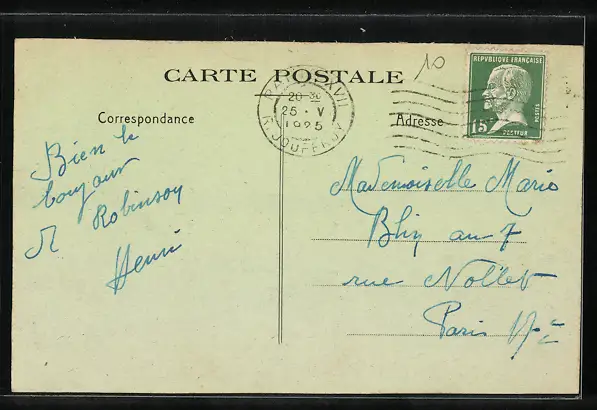 10
CARTE POSTALE
REPUBLIQUE FRANÇAISE
15c
POSTES
PASTEUR
PARIS XVII
20 30
25 · V
1925
R. JOUFFROY
Correspondance
Adresse
Bien le
bonjour
Robinson
Henri
Mademoiselle Marie
Blin au 7
rue Nollet
Paris 17e